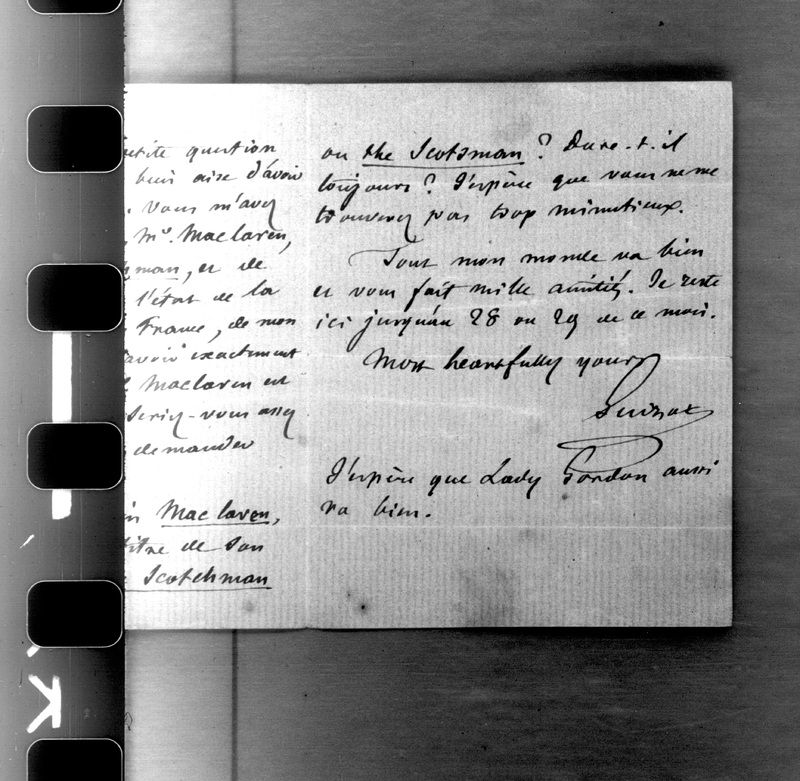 petite question
bien aise d'avoir
. Vous m'avez
Mr. Maclaren,
hman, et de
l'état de la
France, de mon
savoir exactement
Maclaren est
Seriez-vous assez
demander
Maclaren,
titre de son
Scotchman
ou the Scotsman ? Dure-t-il
toujours ? J'espère que vous ne me
trouverez pas trop minutieux.
Tout mon monde va bien
et vous fait mille amitiés. Je reste
ici jusqu'au 28 ou 29 de ce mois.
Most heartfully yours
Guizot
J'espère que Lady Gordon aussi
va bien.
K